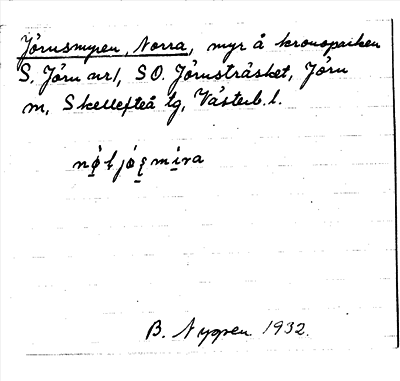 Jörnsmyren, Norra, myr å kronoparken
S. Jörn nr 1, SO. Jörnsträsket, Jörn
m, Skellefteå tg, Västerb. l.
mira
B. Nygren 1932.